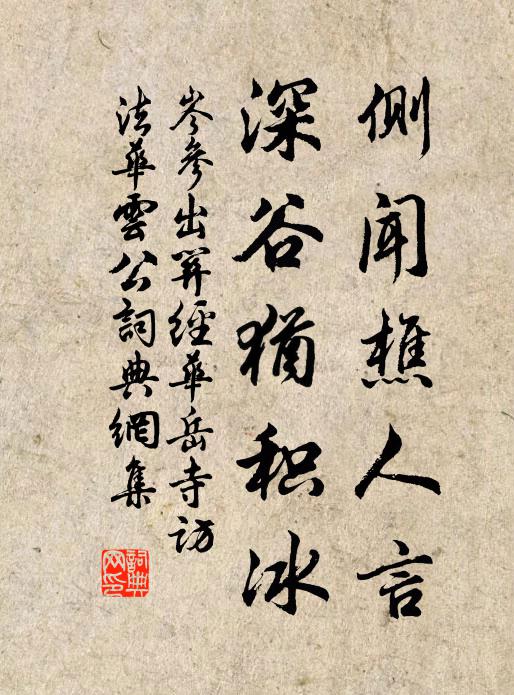 侧闻樵人言
深谷犹积冰
岑参出关经华岳寺访
法华云公词典網集
詞典網印